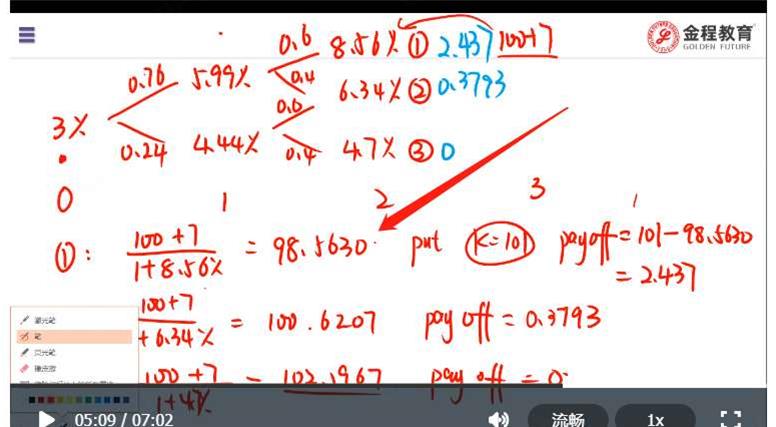 金程教育
GOLDEN FUTURE
0.6 8.56% ① 2.437 100+7
0.76 5.99% 0.4
6.34% ② 0.3793
0.6
3%
0.24 4.44% 0.4 4.7% ③ 0
0 1 2 3
①: 100+7 / 1+8.56% = 98.5630 put K=101 payoff = 101-98.5630
= 2.437
100+7 / +6.34% = 100.6207 pay off = 0.3793
100+7 / 1+4.7% = 102.1967 pay off = 0
激光笔
笔
荧光笔
橡皮擦
05:09 / 07:02 流畅 1x